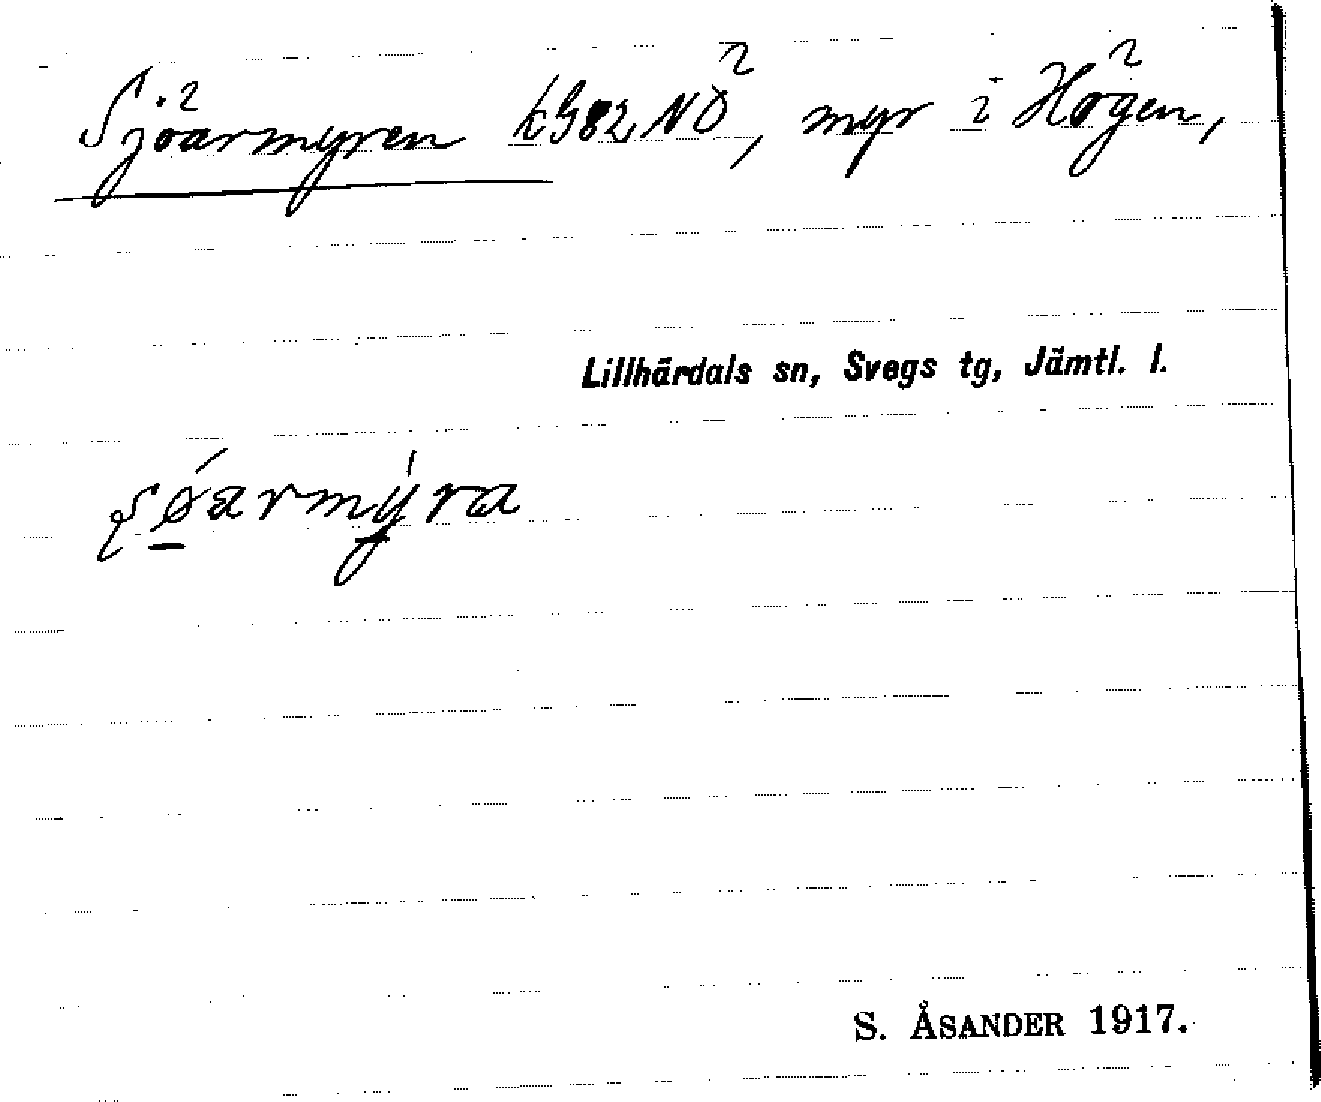 Sjöarmyren k982NÖ, myr i Högen,
Lillhärdals sn, Svegs tg, Jämtl. l.
ʂøarmyra
S. ÅSANDER 1917.